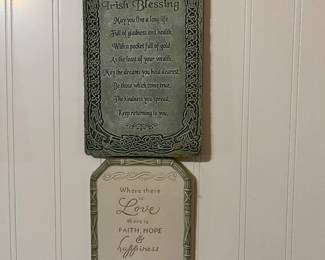 Irish Blessing
May you live a long life
Full of gladness and health,
With a pocket full of gold
As the least of your wealth.
May the dreams you hold dearest,
Be those which come true,
The kindness you spread,
Keep returning to you.
Where there
is Love
there is
FAITH, HOPE
&
happiness